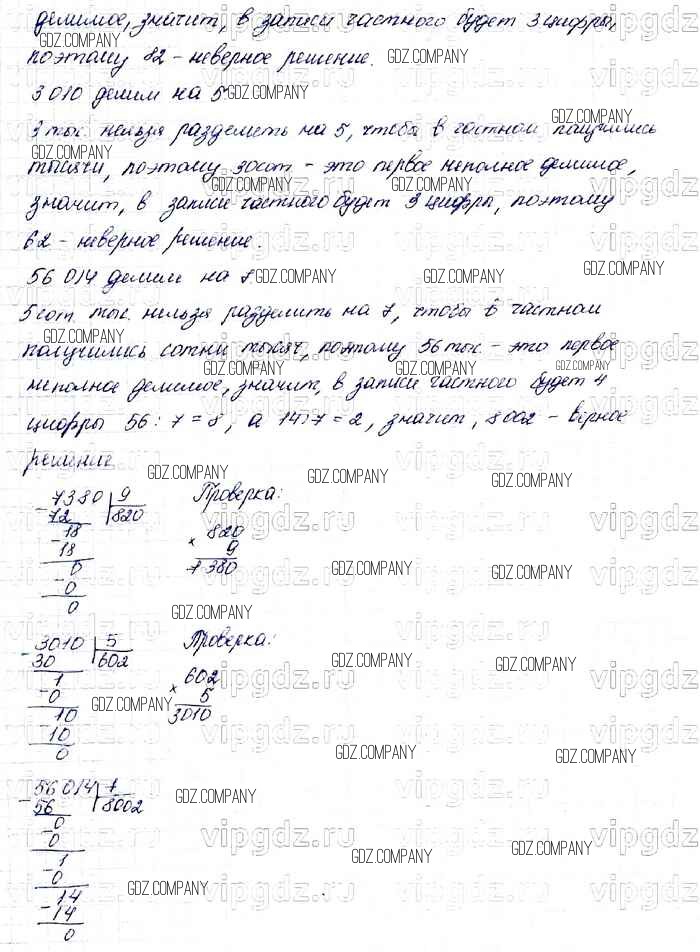 делимое, значит, в записи частного будет 3 цифры,
поэтому 82 – неверное решение.
3 010 делим на 5.
3 тыс. нельзя разделить на 5, чтобы в частном получились
тысячи, поэтому 30 сот – это первое неполное делимое,
значит, в записи частного будет 3 цифры, поэтому
62 – неверное решение.
56 014 делим на 7.
5 сот. тыс. нельзя разделить на 7, чтобы в частном
получились сотни тысяч, поэтому 56 тыс. – это первое
неполное делимое, значит, в записи частного будет 4
цифры 56 : 7 = 8, а 14 : 7 = 2, значит, 8002 – верное
решение
7380 9 Проверка:
- 72 820 820
18 × 9
- 18 7 380
0
- 0
0
3010 5 Проверка:
- 30 602 602
1 × 5
- 0 3010
10
- 10
0
56 014 7
- 56 8002
0
- 0
1
- 0
14
- 14
0
GDZ.COMPANY
vipgdz.ru